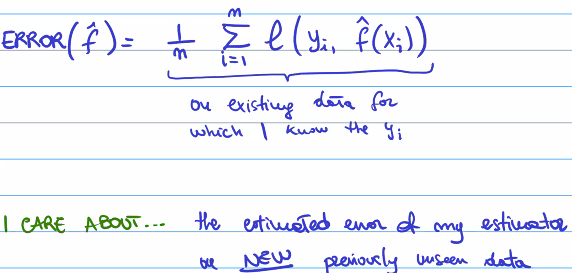 ERROR(f̂) = 1/m m∑i=1 ℓ(yi, f̂(xi))
on existing data for
which I know the yi
I CARE ABOUT... the estimated error of my estimator
on NEW previously unseen data